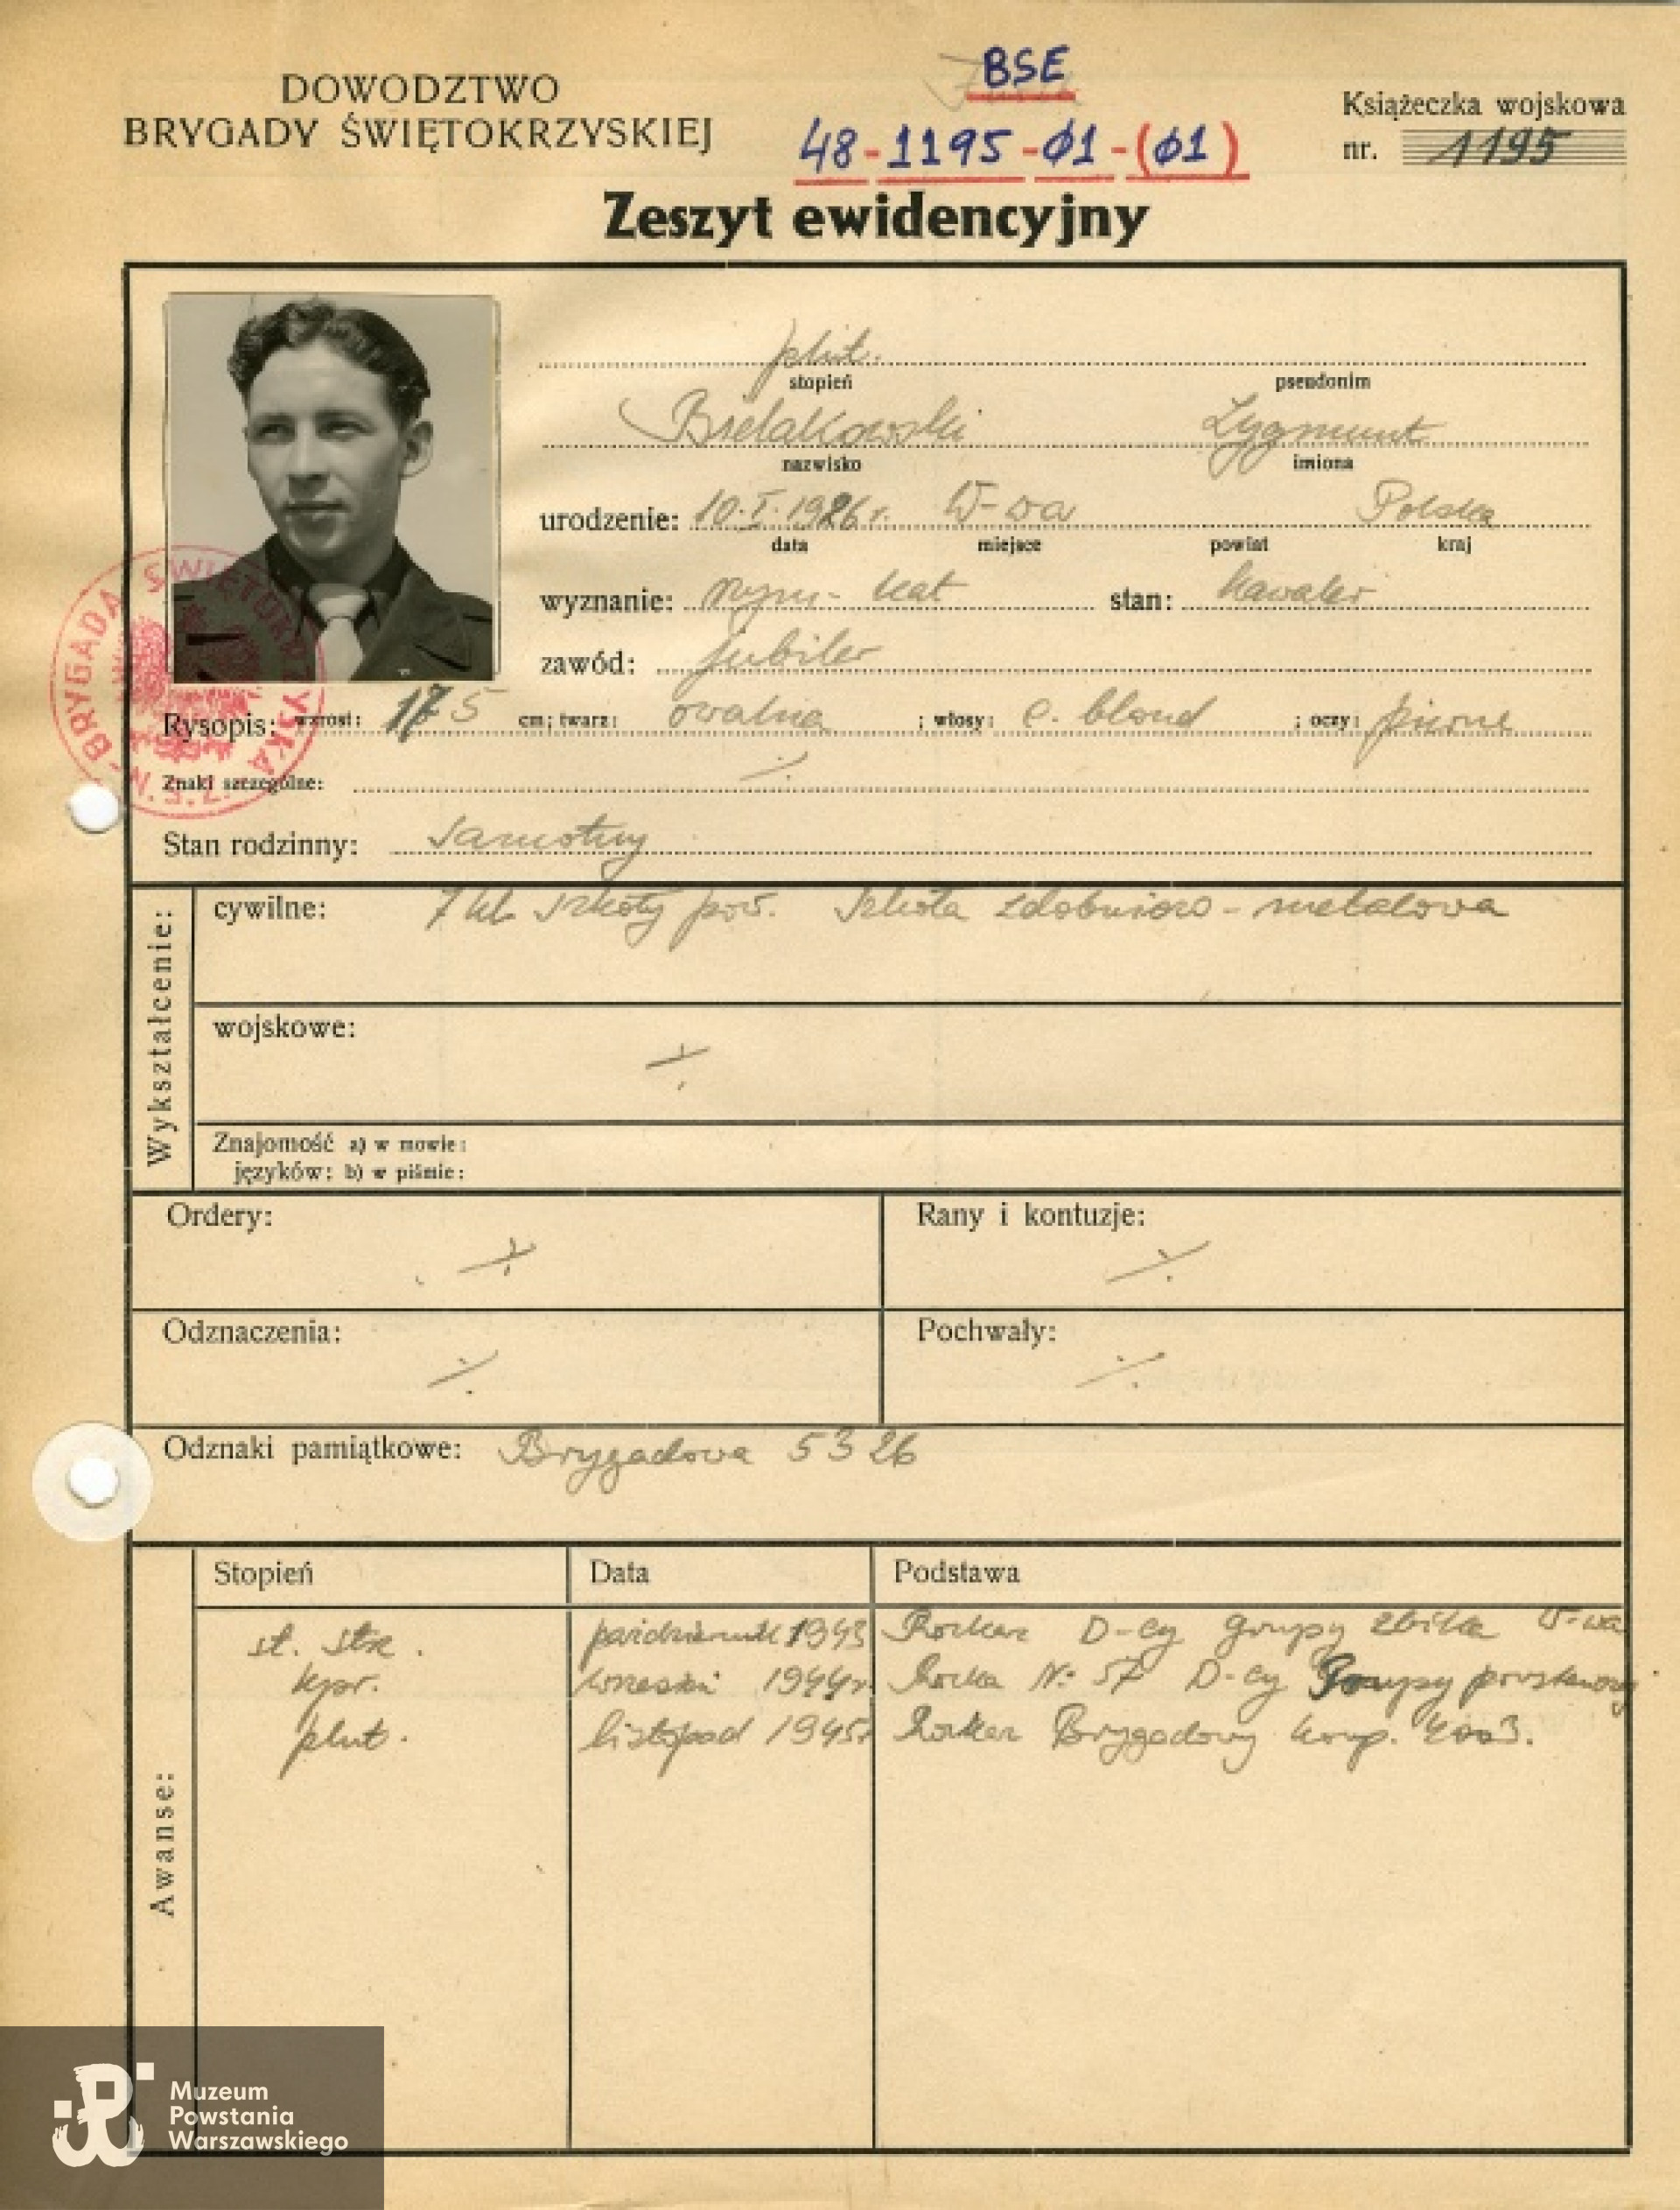 BSE
DOWODZTWO
BRYGADY ŚWIĘTOKRZYSKIEJ
48-1195-Ø1-(Ø1)
Książeczka wojskowa
nr. 1195
Zeszyt ewidencyjny
plut.
stopień pseudonim
Bielakowski Zygmunt
nazwisko imiona
urodzenie: 10.I.1926 r. W-wa Polska
data miejsce powiat kraj
wyznanie: rzym- kat stan: kawaler
zawód: jubiler
Rysopis: wzrost: 175 cm; twarz: owalna ; włosy: c. blond ; oczy: piwne
Znaki szczególne: ·/.
Stan rodzinny: Samotny
BRYGADA ŚWIĘTOKRZYSKA N.S.Z.
Wykształcenie:
cywilne: 7 kl. szkoły pow. Szkoła zdobniczo-metalowa
wojskowe: ·/.
Znajomość a) w mowie:
języków: b) w piśmie:
Ordery: ·/. Rany i kontuzje: ·/.
Odznaczenia: ·/. Pochwały: ·/.
Odznaki pamiątkowe: Brygadowa 5326
Awanse:
Stopień Data Podstawa
st. strz. październik 1943 Rozkaz D-cy grupy Żbika W-wa
kpr. wrzesień 1944 r. N: 57 D-cy Grupy
plut. listopad 1945 r Rozkaz Brygadowy komp.
Muzeum
Powstania
Warszawskiego